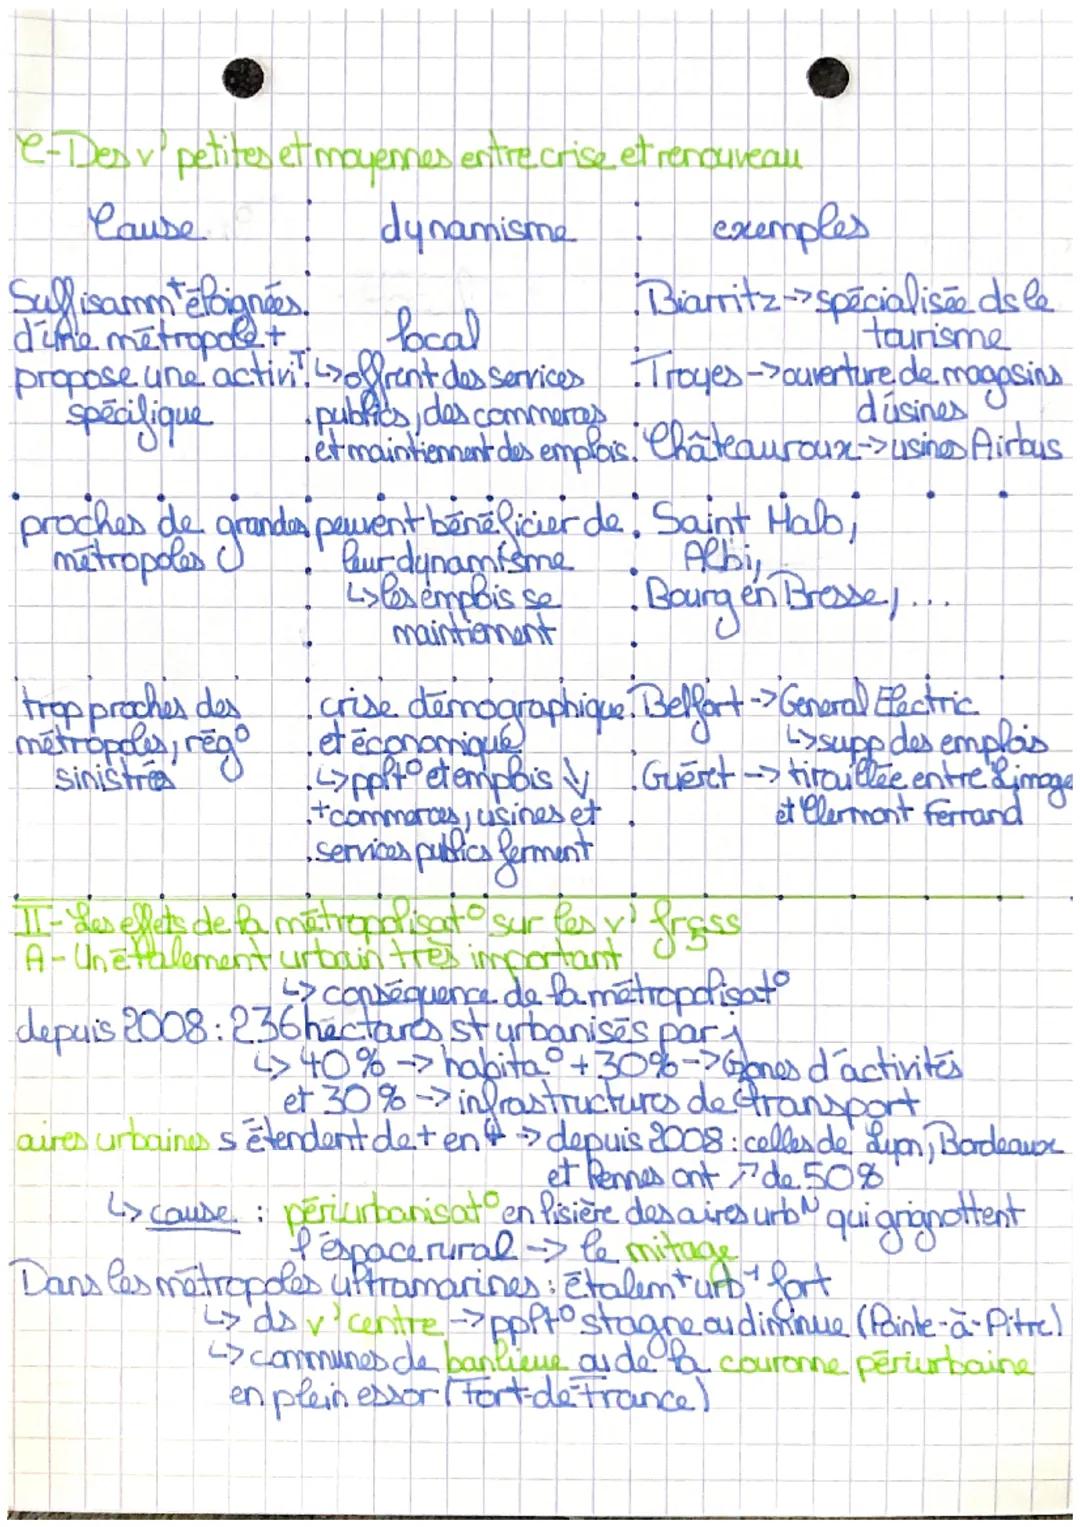 C-Des v' petites et moyennes entre crise et renouveau
Cause dynamisme exemples
Suffisamm^t éloignées
d'une métropole +
propose une activi^T
spécifique
local
↳ offrent des services
publics, des commerces
et maintiennent des emplois.
Biarritz -> spécialisée ds le
tourisme
Troyes -> ouverture de magasins
d'usines
Châteauroux -> usines Airbus
proches de grandes
métropoles
peuvent bénéficier de
leur dynamisme
↳ les emplois se
maintiennent
Saint Malo,
Albi,
Bourg en Bresse, ...
trop proches des
métropoles, rég°
sinistrés
crise démographique
et économique
↳ pplt° et emplois ↓
+ commerces, usines et
services publics ferment
Belfort -> General Electric
↳ supp des emplois
Guéret -> tiraillée entre Limoge
et Clermont Ferrand
II- Les effets de la métropolisat° sur les v' frçss
A - Un étalement urbain très important
↳ conséquence de la métropolisat°
depuis 2008 : 236 hectares st urbanisés par j
↳ 40% -> habita° + 30% -> zones d'activités
et 30% -> infrastructures de transport
aires urbaines s'étendent de + en + -> depuis 2008 : celles de Lyon, Bordeaux
et Rennes ont ↗ de 50%
↳ cause : périurbanisat° en lisière des aires urb^N qui grignottent
l'espace rural -> le mitage
Dans les métropoles ultramarines : étalem^t urb^1 fort
↳ ds v' centre -> pplt° stagne ou diminue (Pointe-à-Pitre)
↳ communes de banlieue ou de la couronne périurbaine
en plein essor (Fort-de-France)